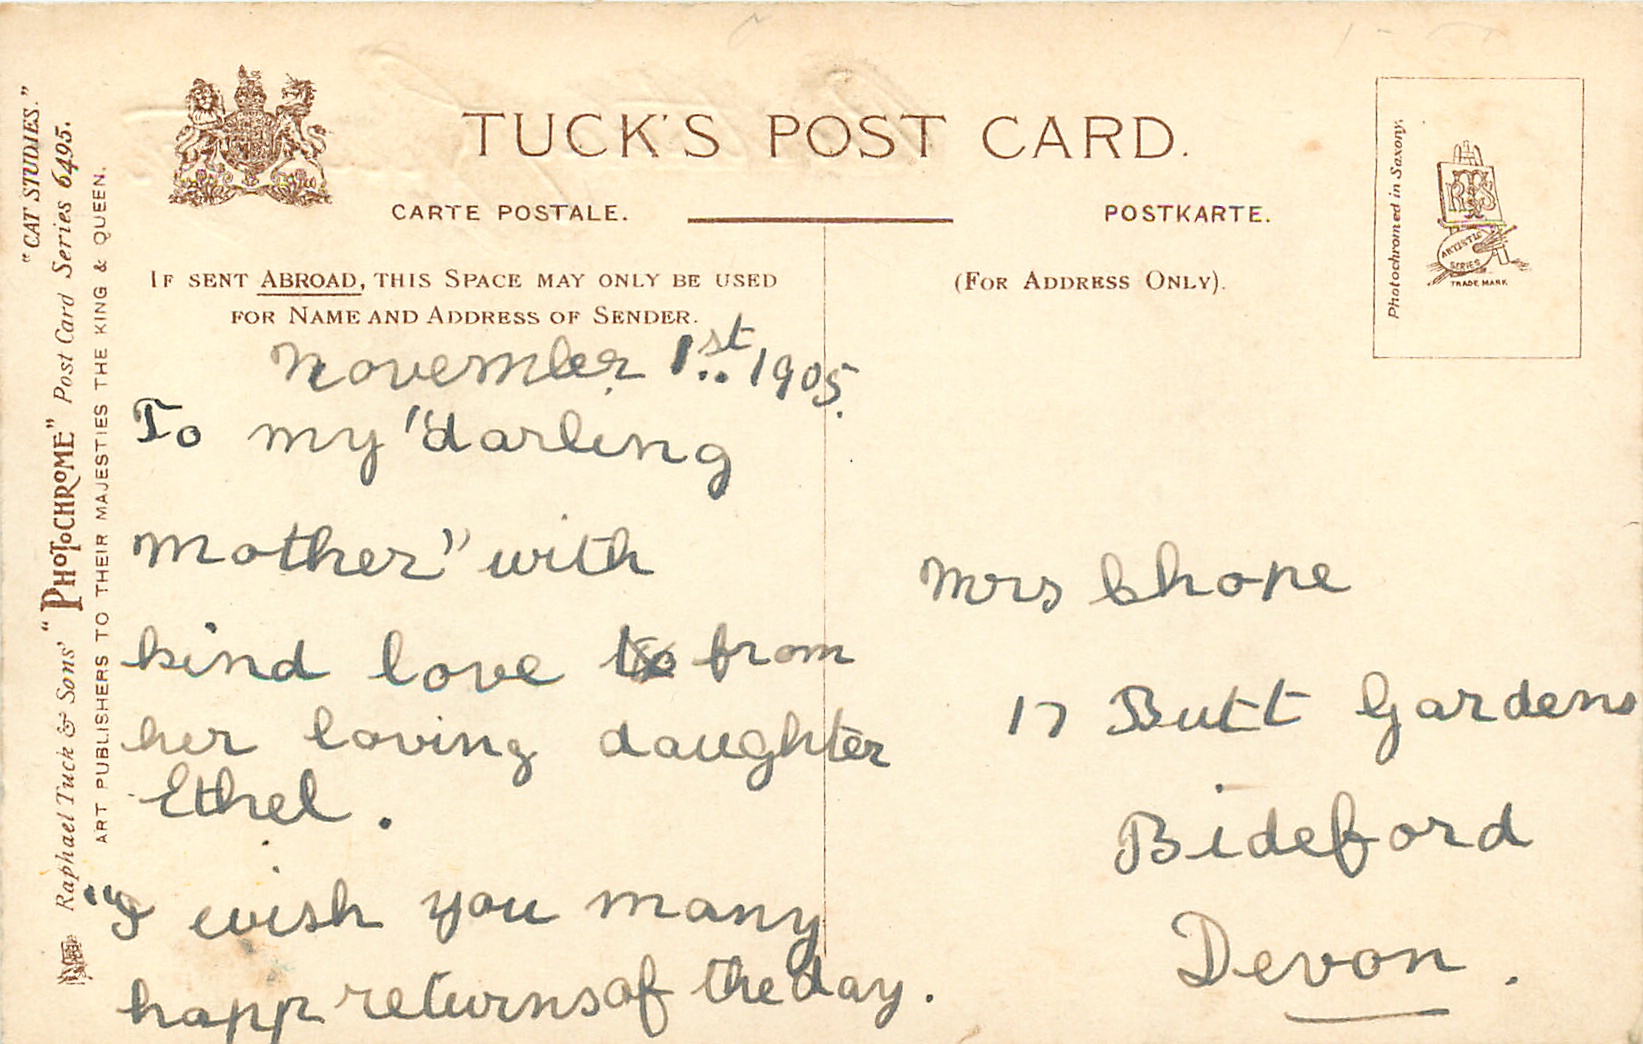 TUCK'S POST CARD.
CARTE POSTALE.
POSTKARTE.
IF SENT ABROAD, THIS SPACE MAY ONLY BE USED
FOR NAME AND ADDRESS OF SENDER.
(FOR ADDRESS ONLY).
"CAT STUDIES."
Raphael Tuck & Sons' "PHOTOCHROME" Post Card Series 6495.
ART PUBLISHERS TO THEIR MAJESTIES THE KING & QUEEN.
Photochromed in Saxony.
RTS
ARTISTIC
SERIES
TRADE MARK
November 1st 1905.
To my "darling
Mother" with
kind love to from
her loving daughter
Ethel.
"I wish you many
happ returns of the day.
Mrs Chope
17 Butt Gardens
Bideford
Devon.